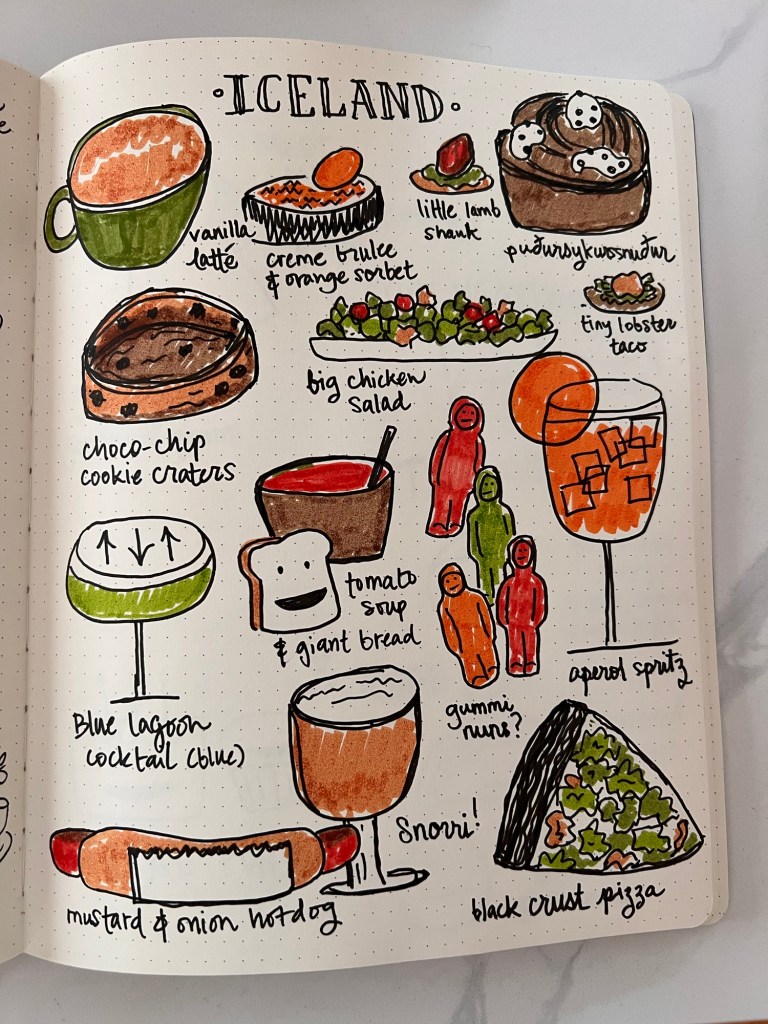 ·ICELAND·
vanilla
latté
creme brulee
& orange sorbet
little lamb
shank
puðursykursnuður
tiny lobster
taco
big chicken
salad
choco-chip
cookie craters
tomato
soup
& giant bread
gummi
nuns?
aperol spritz
Blue lagoon
cocktail (blue)
Snorri!
mustard & onion hotdog
black crust pizza